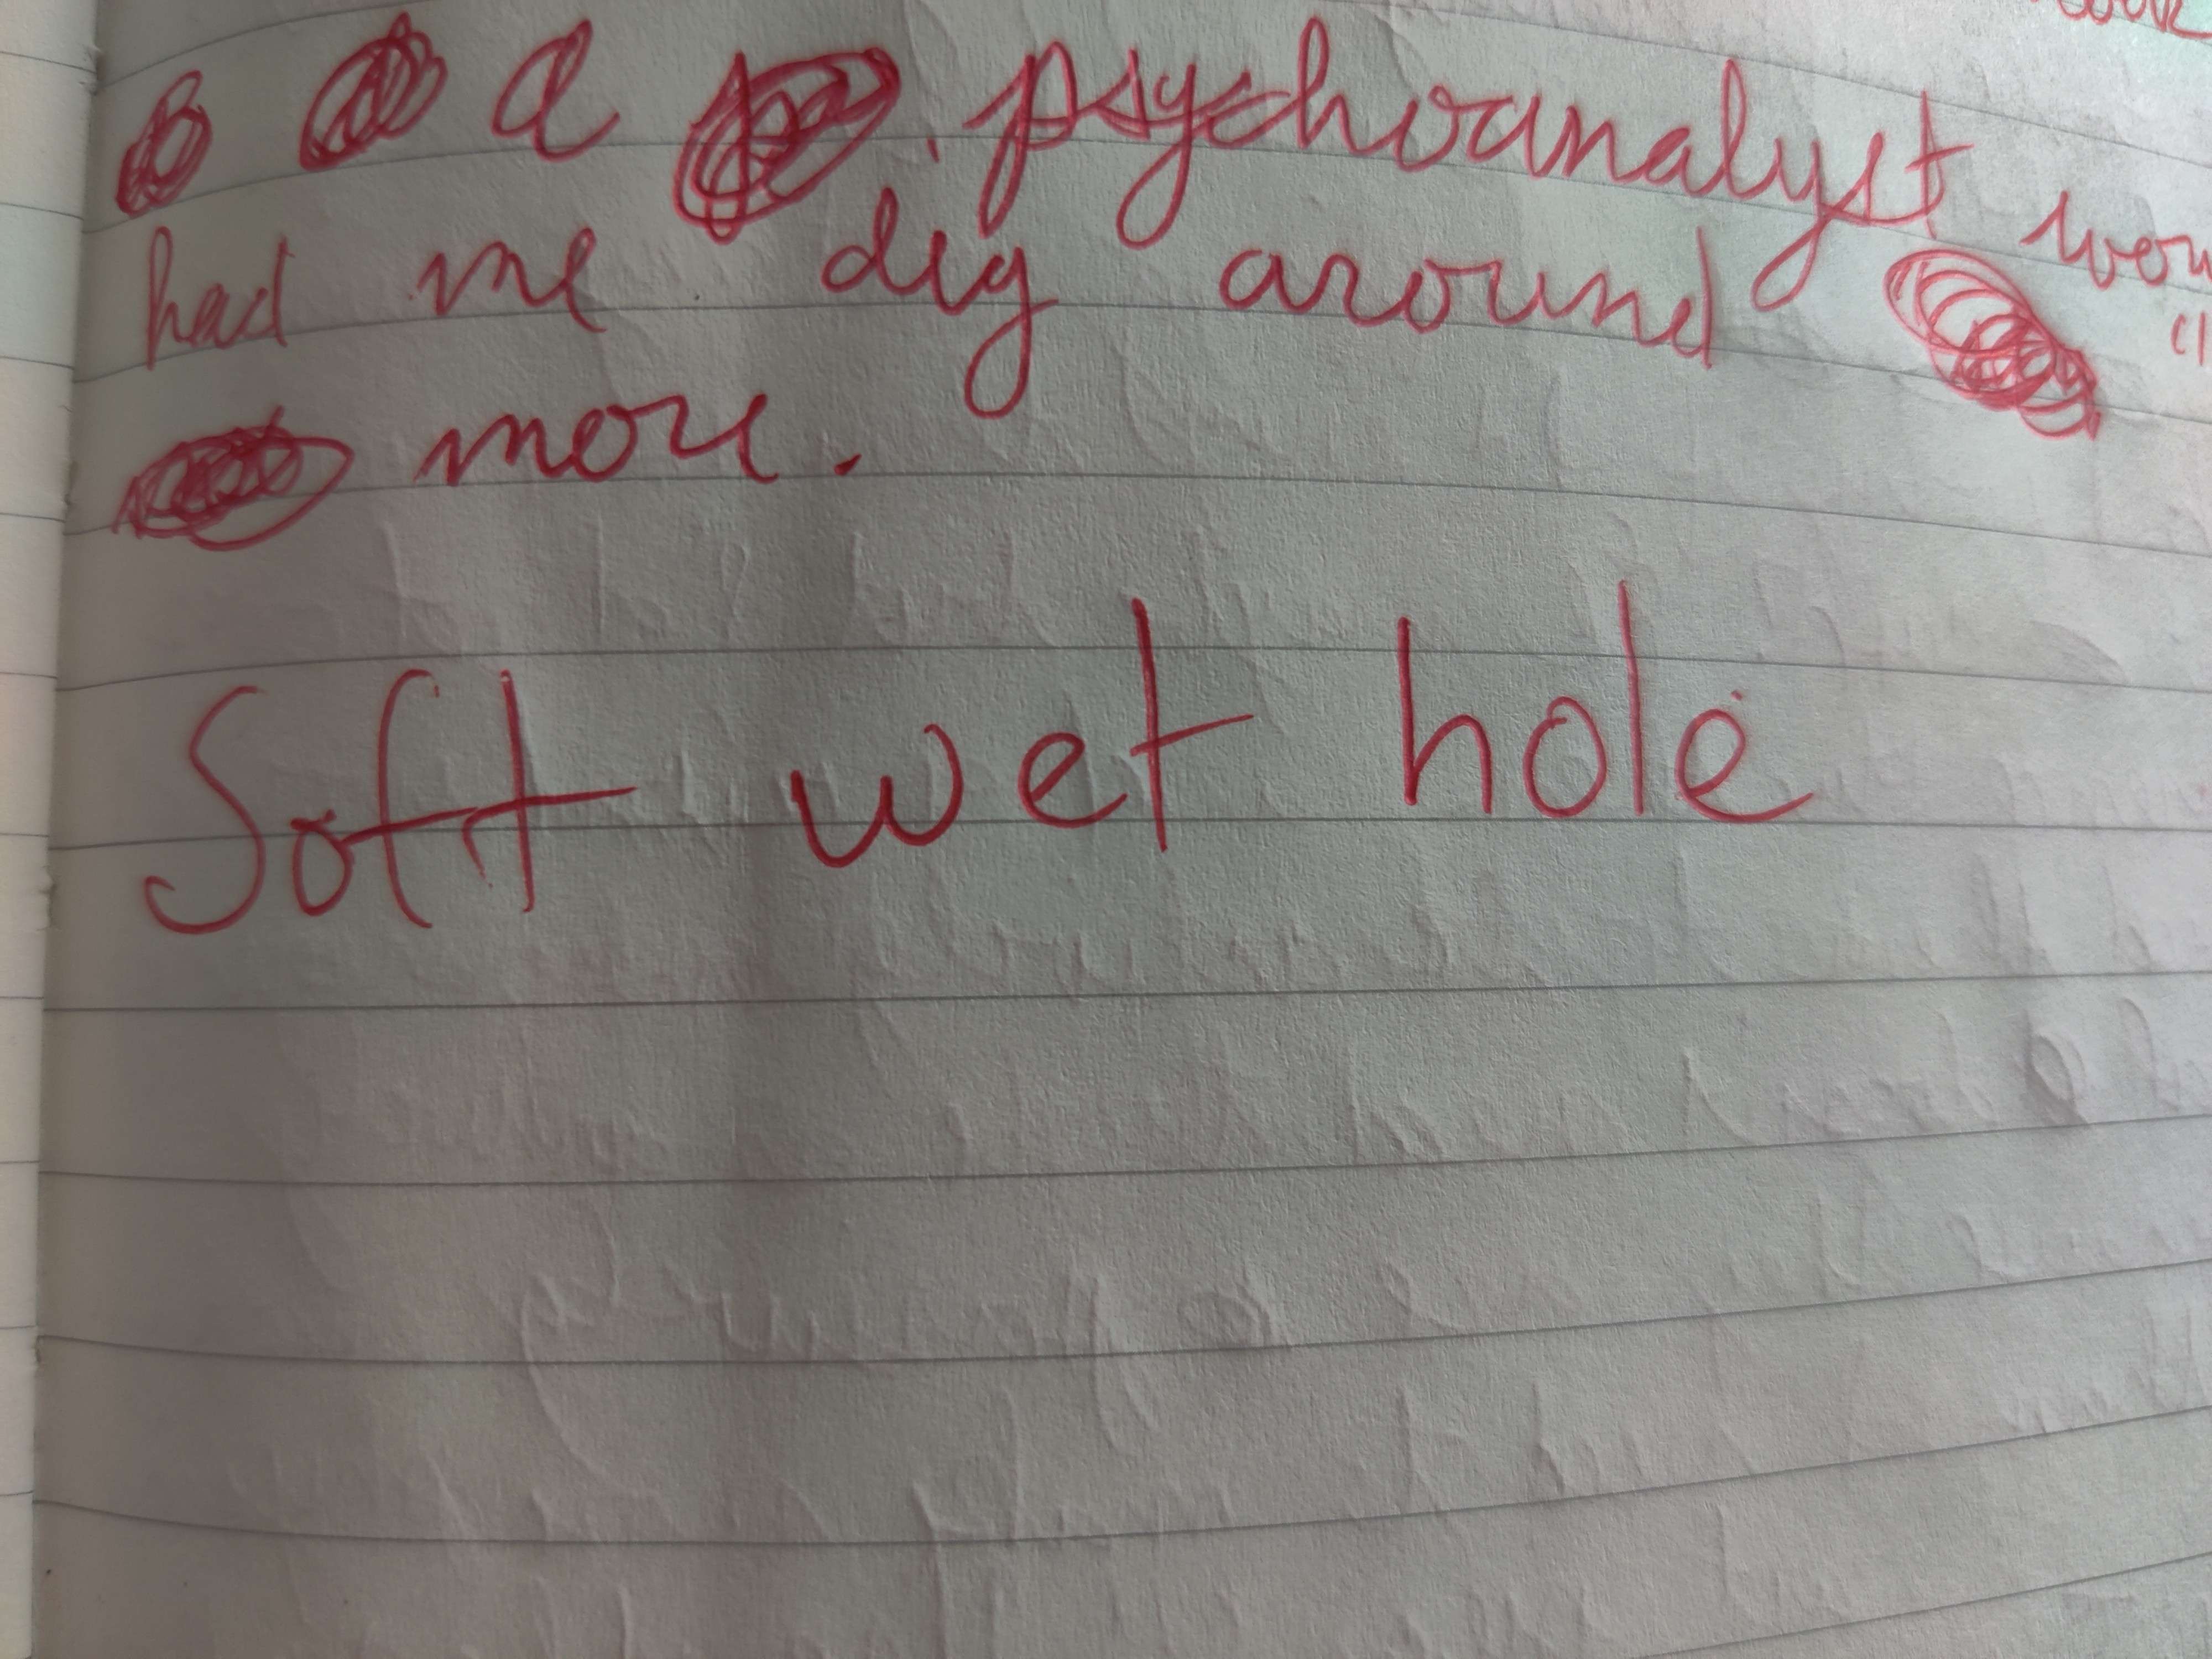 a psychoanalyst
had me dig around
more.
Soft wet hole